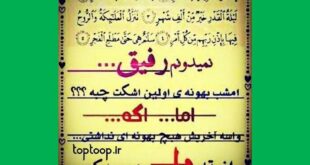 لَيْلَةُ الْقَدْرِ خَيْرٌ مِنْ أَلْفِ شَهْرٍ ﴿٣﴾ تَنَزَّلُ الْمَلَائِكَةُ وَالرُّوحُ
فِيهَا بِإِذْنِ رَبِّهِمْ مِنْ كُلِّ أَمْرٍ ﴿٤﴾ سَلَامٌ هِيَ حَتَّى مَطْلَعِ الْفَجْرِ ﴿٥﴾
نمیدونم رفیق...
امشب بهونه ی اولین اشکت چیه ؟؟؟
اما... اگه...
واسه آخریش هیچ بهونه ای نداشتی...
toptoop.ir